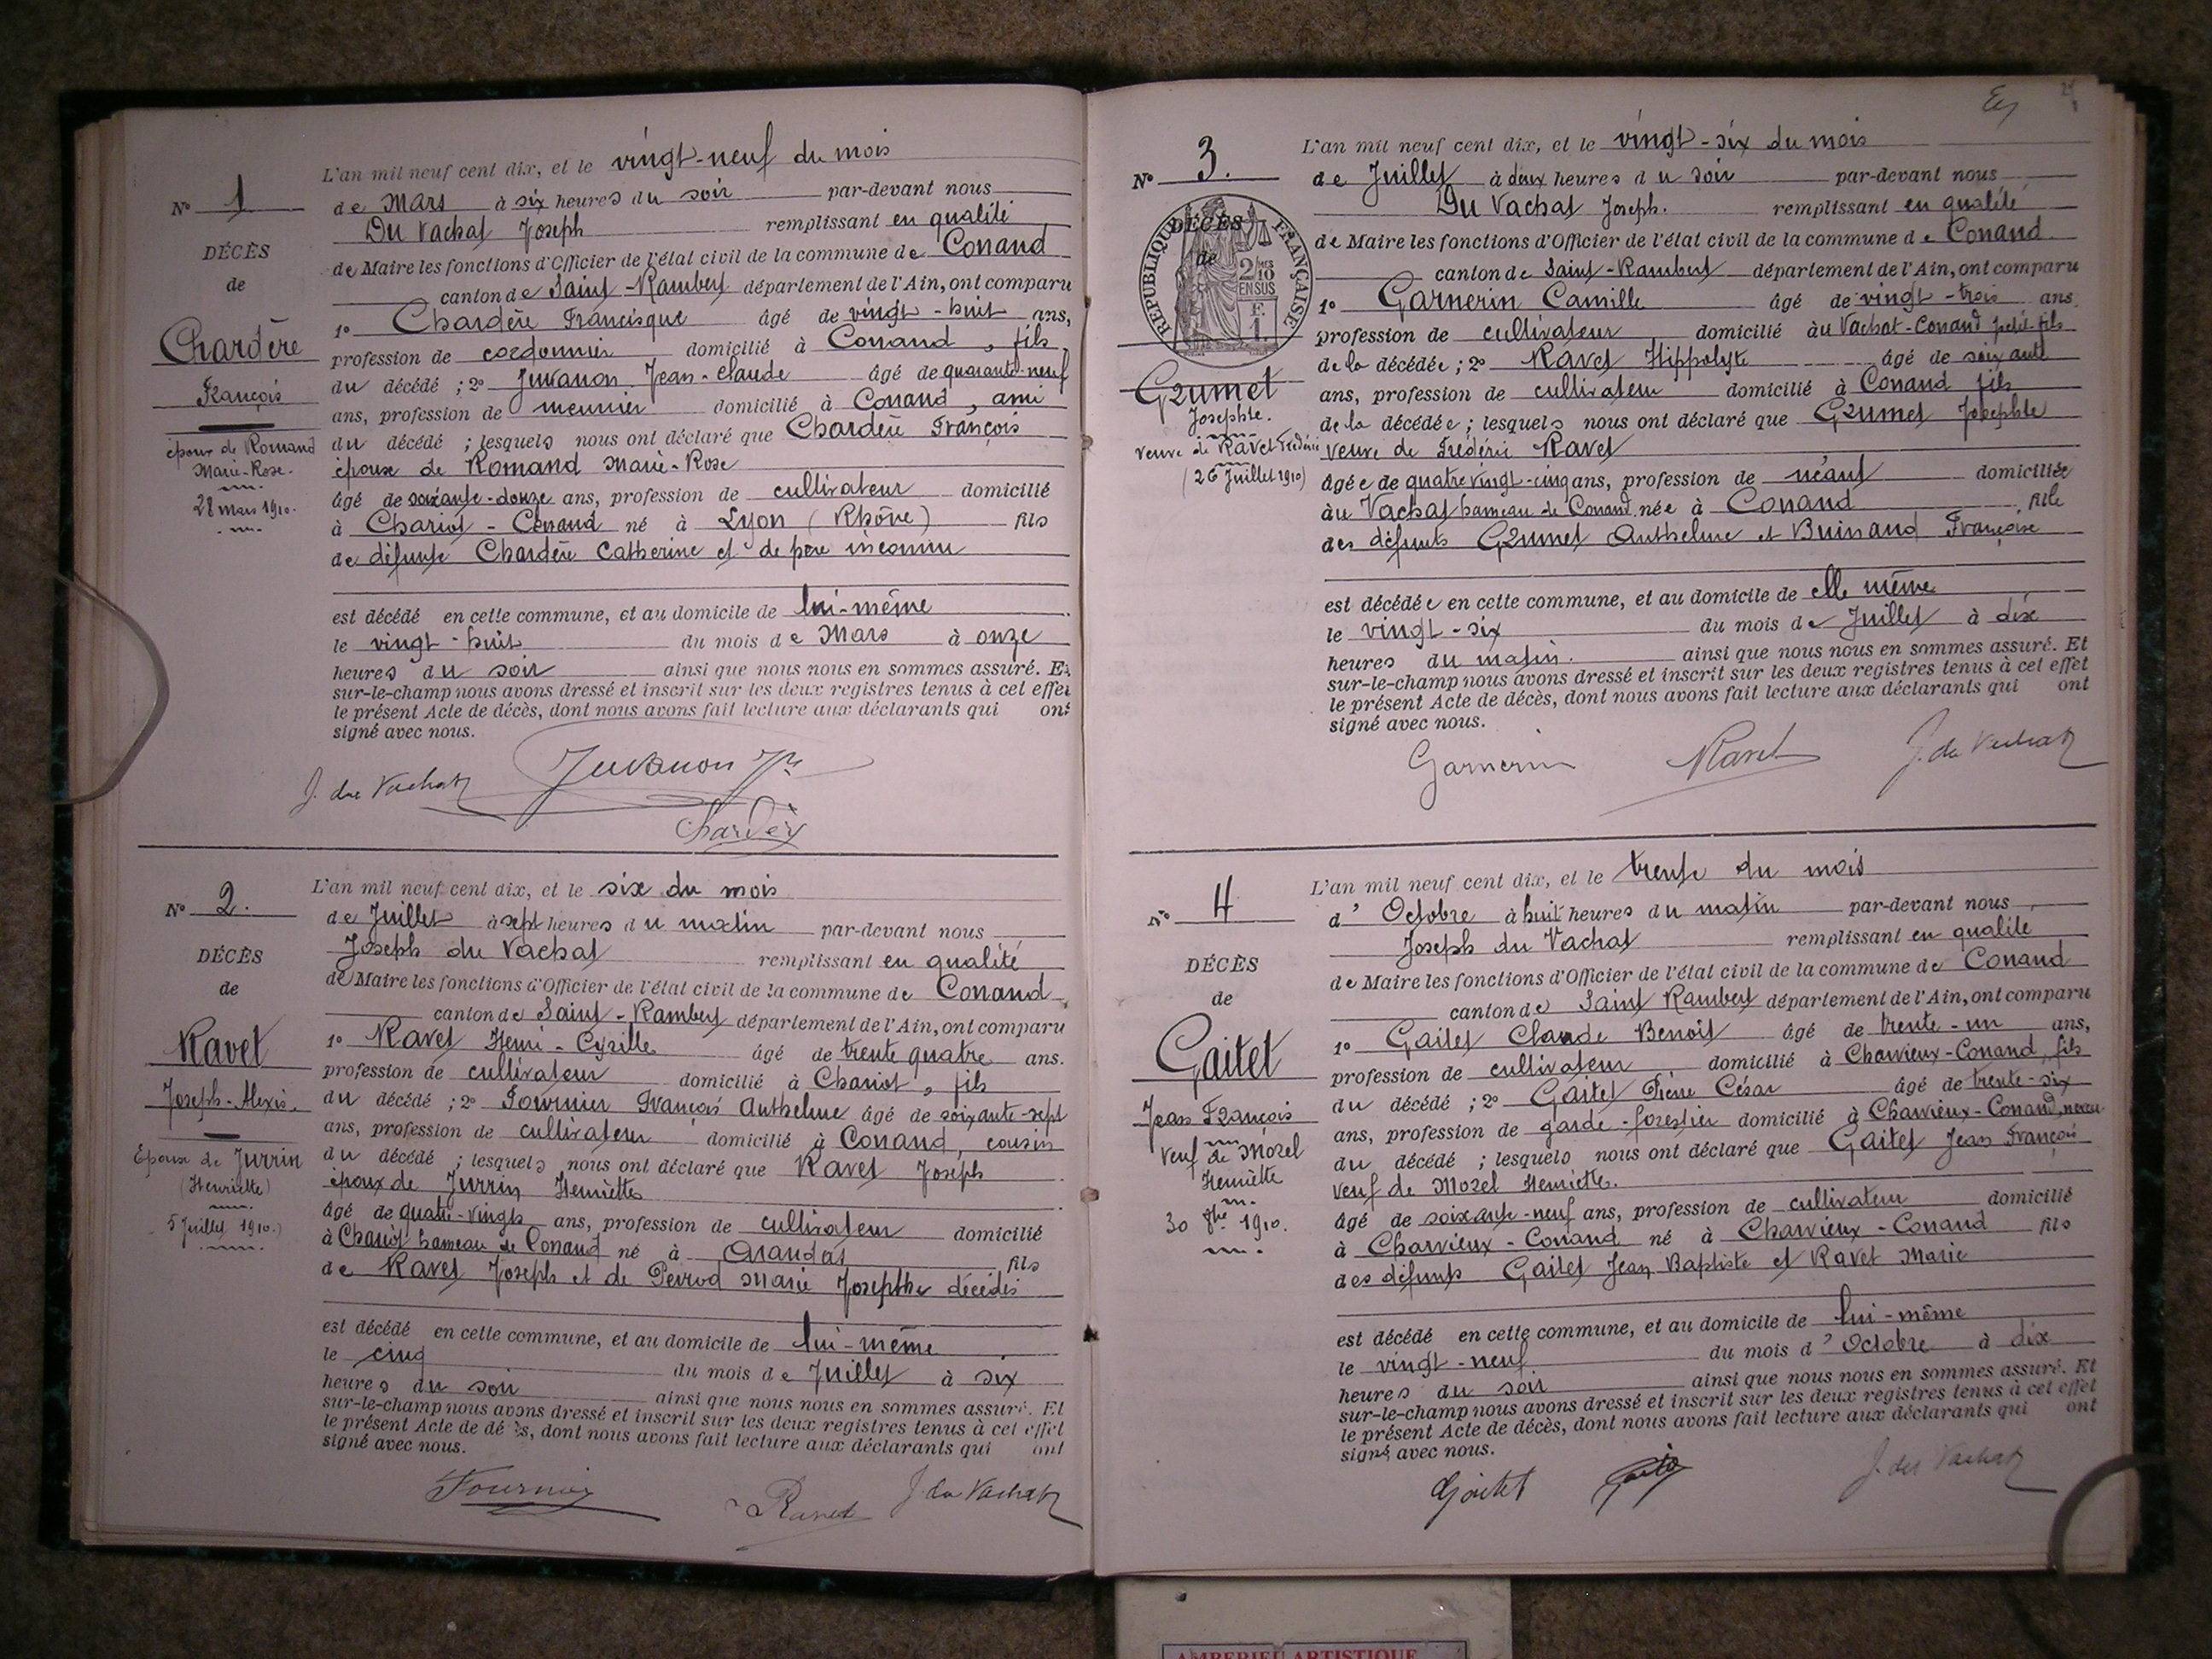 L'an mil neuf cent dix, et le vingt-neuf du mois
N° 1
de Mars à six heures du soir par-devant nous
Du Vachat Joseph remplissant en qualité
DÉCÈS
de Maire les fonctions d'Officier de l'état civil de la commune de Conand
de
canton de Saint-Rambert département de l'Ain, ont comparu
1° Chardère Francisque âgé de vingt-huit ans,
Chardère
profession de cordonnier domicilié à Conand, fils
François
du décédé ; 2° Juvanon Jean-Claude âgé de quarante-neuf
ans, profession de meunier domicilié à Conand, ami
du décédé ; lesquels nous ont déclaré que Chardère François
époux de Romand
Marie-Rose.
époux de Romand Marie-Rose
28 mars 1910.
âgé de soixante-douze ans, profession de cultivateur domicilié
à Chariot-Conand né à Lyon (Rhône) fils
de défunte Chardère Catherine et de père inconnu
est décédé en cette commune, et au domicile de lui-même
le vingt-huit du mois de Mars à onze
heures du soir ainsi que nous nous en sommes assuré. Et
sur-le-champ nous avons dressé et inscrit sur les deux registres tenus à cet effet
le présent Acte de décès, dont nous avons fait lecture aux déclarants qui ont
signé avec nous.
J. du Vachat Juvanon
Chardère
L'an mil neuf cent dix, et le six du mois
N° 2.
de Juillet à sept heures du matin par-devant nous
Joseph du Vachat remplissant en qualité
DÉCÈS
de Maire les fonctions d'Officier de l'état civil de la commune de Conand
de
canton de Saint-Rambert département de l'Ain, ont comparu
1° Ravet Henri-Cyrille âgé de trente quatre ans.
Ravet
profession de cultivateur domicilié à Chariot, fils
Joseph-Alexis.
du décédé ; 2° Fournier François Anthelme âgé de soixante-sept
ans, profession de cultivateur domicilié à Conand, cousin
Epoux de Jurrin
(Henriette)
du décédé ; lesquels nous ont déclaré que Ravet Joseph
époux de Jurrin Henriette
5 Juillet 1910.)
âgé de quatre-vingts ans, profession de cultivateur domicilié
à Chariot hameau de Conand né à Arandas fils
de Ravet Joseph et de Perrod Marie Josephte décédés
est décédé en cette commune, et au domicile de lui-même
le cinq du mois de Juillet à six
heures du soir ainsi que nous nous en sommes assuré. Et
sur-le-champ nous avons dressé et inscrit sur les deux registres tenus à cet effet
le présent Acte de décès, dont nous avons fait lecture aux déclarants qui ont
signé avec nous.
Fournier Ravet J. du Vachat
L'an mil neuf cent dix, et le vingt-six du mois
N° 3.
de Juillet à deux heures du soir par-devant nous
Du Vachat Joseph. remplissant en qualité
DÉCÈS
de
RÉPUBLIQUE FRANÇAISE
2/10
EN SUS
F.
1.
de Maire les fonctions d'Officier de l'état civil de la commune de Conand
canton de Saint-Rambert département de l'Ain, ont comparu
1° Garnerin Camille âgé de vingt-trois ans
profession de cultivateur domicilié au Vachat-Conand petit-fils
de la décédée ; 2° Ravet Hippolyte âgé de soixante
Grumet
ans, profession de cultivateur domicilié à Conand fils
Josephte.
de la décédée ; lesquels nous ont déclaré que Grumet Josephte
veuve de Ravet Frédéric
veuve de Frédéric Ravet
(26 Juillet 1910)
âgée de quatre vingt-cinq ans, profession de néant domiciliée
au Vachat hameau de Conand née à Conand fille
des défunts Grumet Anthelme et Buinand Françoise
est décédée en cette commune, et au domicile de elle même
le vingt-six du mois de Juillet à dix
heures du matin. ainsi que nous nous en sommes assuré. Et
sur-le-champ nous avons dressé et inscrit sur les deux registres tenus à cet effet
le présent Acte de décès, dont nous avons fait lecture aux déclarants qui ont
signé avec nous.
Garnerin Ravet J. du Vachat
L'an mil neuf cent dix, et le trente du mois
N° 4
d'Octobre à huit heures du matin par-devant nous
Joseph du Vachat remplissant en qualité
DÉCÈS
de Maire les fonctions d'Officier de l'état civil de la commune de Conand
de
canton de Saint Rambert département de l'Ain, ont comparu
1° Gaitet Claude Benoit âgé de trente-un ans,
Gaitet
profession de cultivateur domicilié à Charvieux-Conand, fils
Jean François
du décédé ; 2° Gaitet Pierre César âgé de trente-six
ans, profession de garde-forestier domicilié à Charvieux-Conand, neveu
Veuf de Mozel
Henriette
du décédé ; lesquels nous ont déclaré que Gaitet Jean François
veuf de Mozel Henriette.
30 8bre 1910.
âgé de soixante-neuf ans, profession de cultivateur domicilié
à Charvieux-Conand né à Charvieux-Conand fils
des défunts Gaitet Jean Baptiste et Ravet Marie
est décédé en cette commune, et au domicile de lui-même
le vingt-neuf du mois d'Octobre à dix
heures du soir ainsi que nous nous en sommes assuré. Et
sur-le-champ nous avons dressé et inscrit sur les deux registres tenus à cet effet
le présent Acte de décès, dont nous avons fait lecture aux déclarants qui ont
signé avec nous.
Gaitet J. du Vachat
AMBERIEU ARTISTIQUE